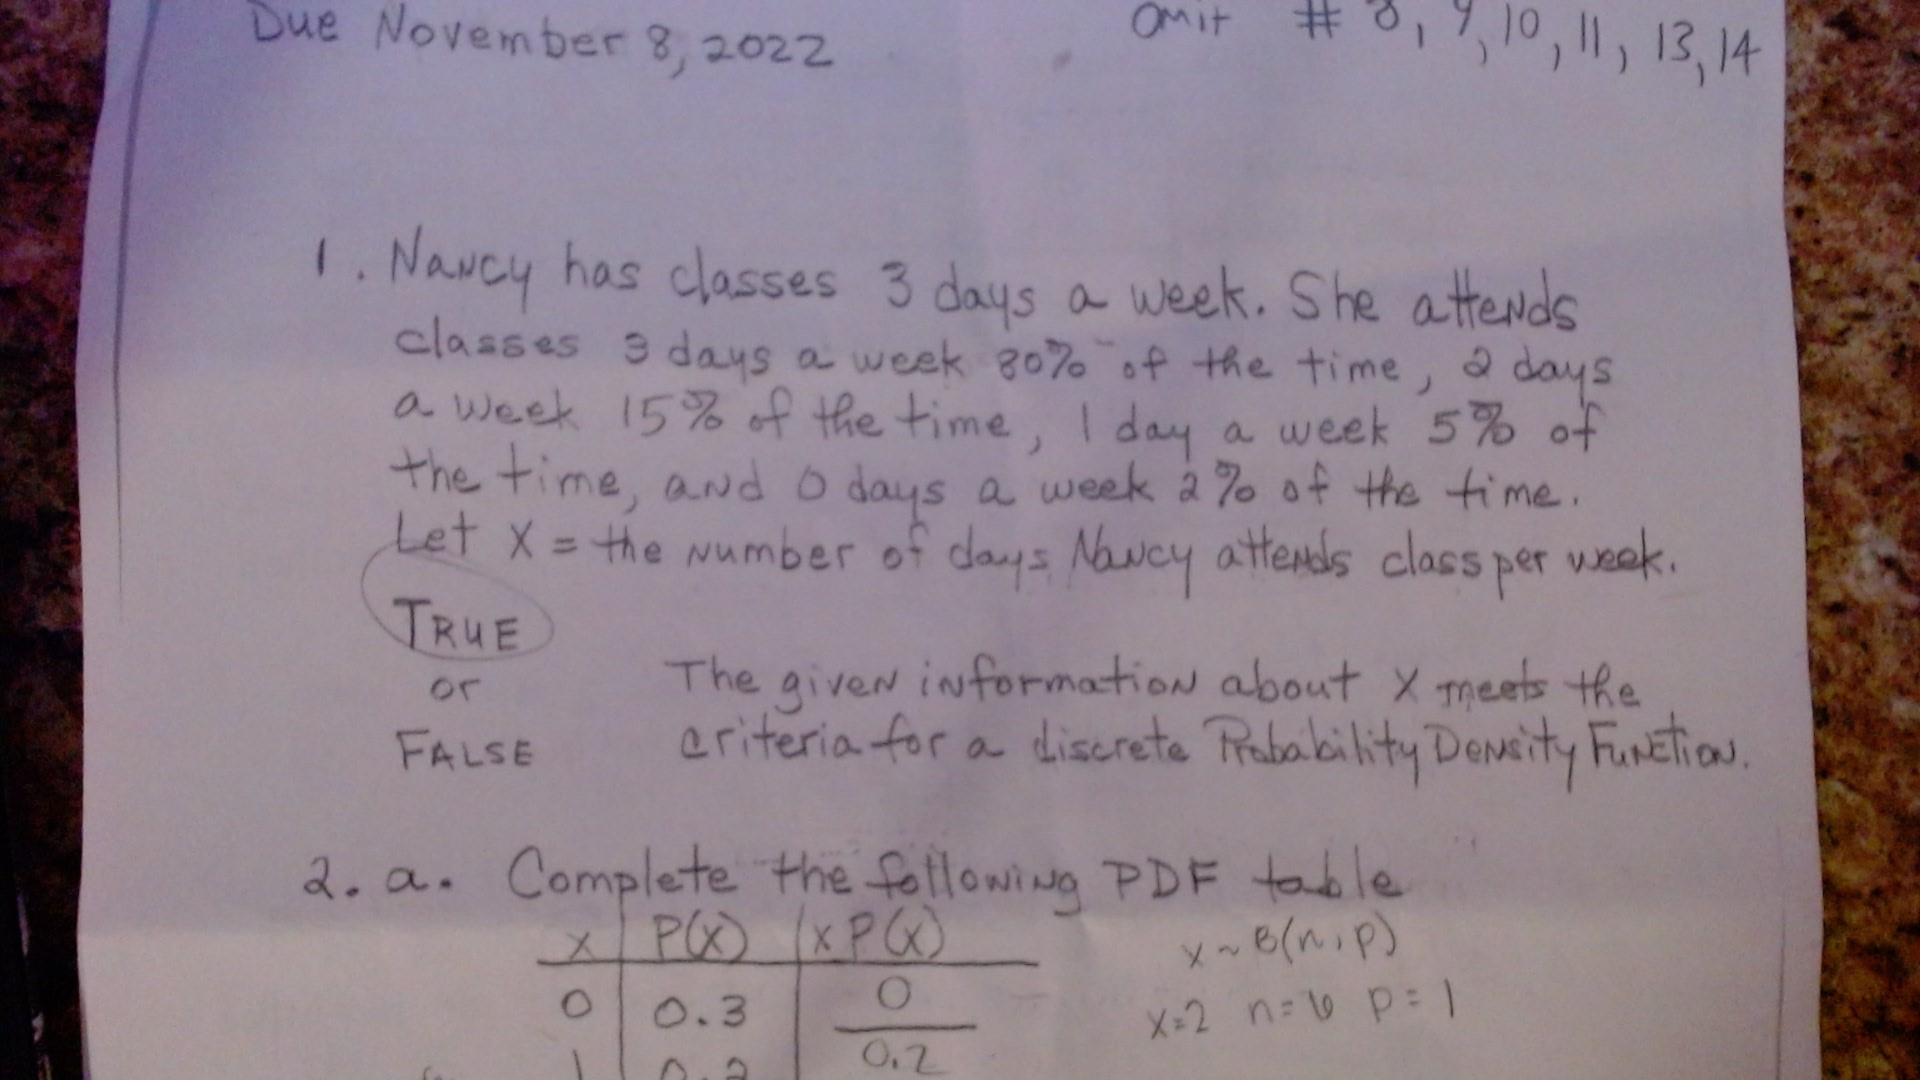 Due November 8, 2022
Omit # 8, 9, 10, 11, 13, 14
1. Nancy has classes 3 days a week. She attends
classes 3 days a week 80% of the time, 2 days
a week 15% of the time, 1 day a week 5% of
the time, and 0 days a week 2% of the time.
Let X = the number of days Nancy attends class per week.
TRUE
or
FALSE
The given information about X meets the
criteria for a discrete Probability Density Function.
2. a. Complete the following PDF table
x P(X) x P(X)
0 0.3 0
1 0.2 0.2
x ~ B(n, p)
x=2 n=6 p=1